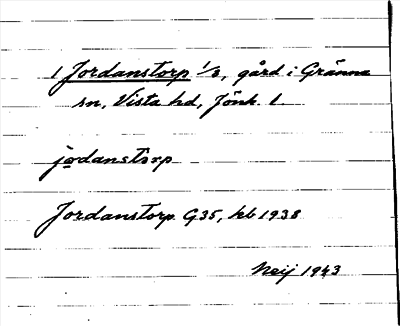 1 Jordanstorp 1/2, gård i Gränna
sn, Vista hd, Jönk. l.
jodanstorp
Jordanstorp G35, kb 1938
Neij 1943